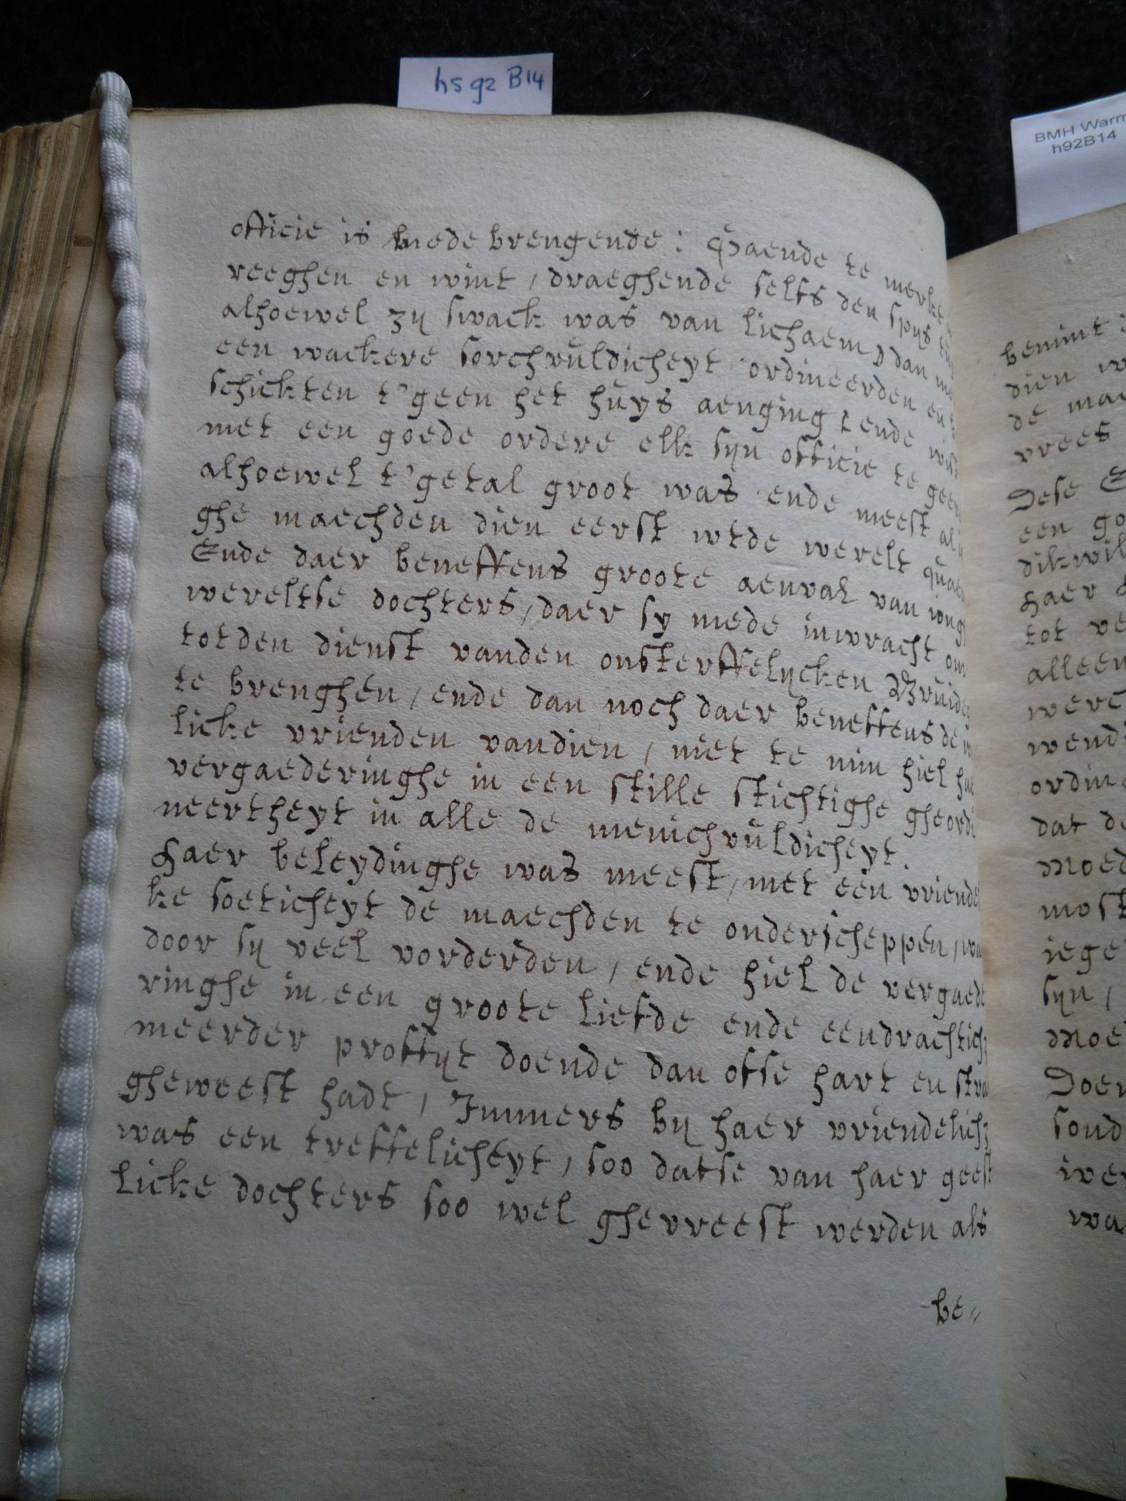 hs 92 B14
BMH Warm
h92B14
officie is mede brengende: Gaende te merkt
reeghen en wint, draeghende selfs den spys
alhoewel zy swack was van lichaem, dan
een wackere sorchvuldicheyt ordineerden en
schickten t'geen het huys aenging ende
met een goede ordere elk syn officie te geen
alhoewel t'getal groot was ende meest al
ghe maechden dien eerst wtde werelt quae
Ende daer beneffens groote aenval van iong
wereltse dochters, daer sy mede inwracht om
totden dienst vanden onsterffelycken Bruide
te brenghen, ende dan noch daer beneffens de
licke vrienden vandien, niet te min hiel ha
vergaederinghe in een stille stichtighe gheordi
neertheyt in alle de menichvuldicheyt.
Haer beleydinghe was meest, met een vriende
ke soeticheyt de maechden te onderscheppen, wa
door sy veel vorderden, ende hiel de vergaede
ringhe in een groote liefde ende eendrachtich
meerder proffyt doende dan ofse hart en stra
gheweest hadt, Immers by haer vriendelich
was een treffelicheyt, soo datse van haer geest
licke dochters soo wel ghevreest werden als
be-
benint
dien
de mae
vrees
Dese
een go
dikwil
haer
tot ve
alleen
werc
wend
ordin
dat de
Moed
most
iege
syn,
Moe
Doen
sond
wa